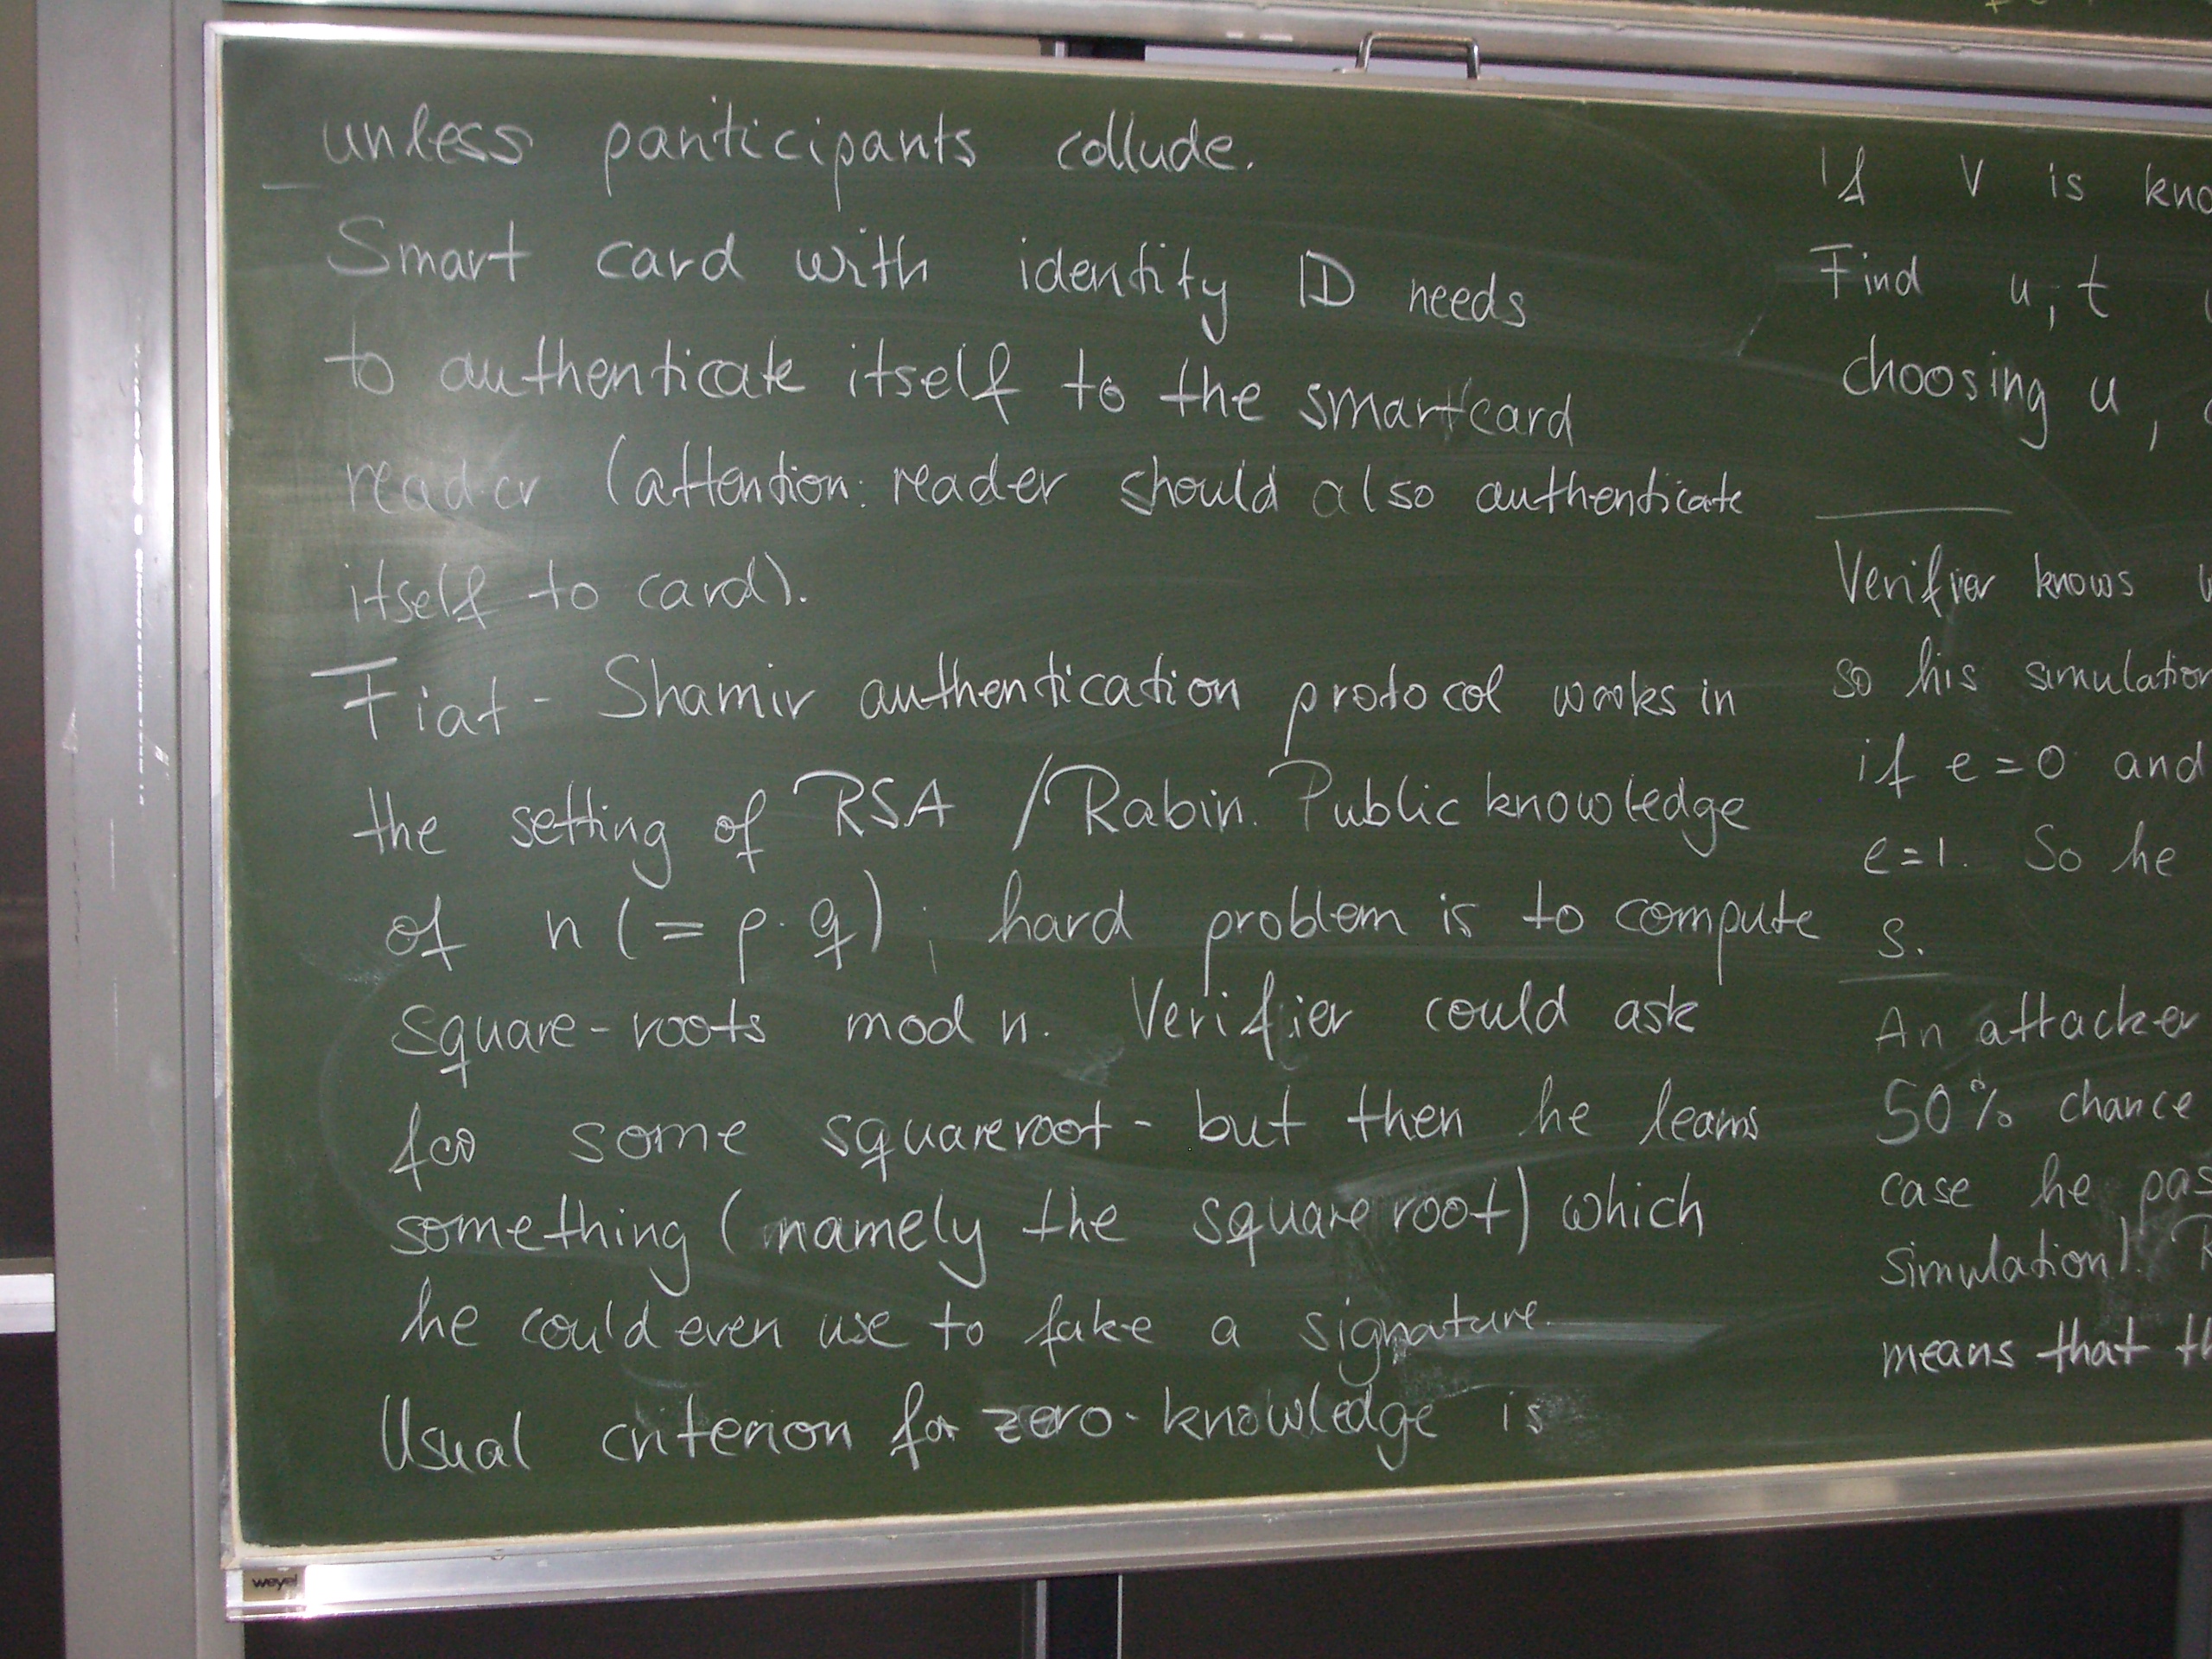 unless participants collude.
Smart card with identity ID needs
to authenticate itself to the smartcard
reader (attention: reader should also authenticate
itself to card).
Fiat - Shamir authentication protocol works in
the setting of RSA / Rabin. Public knowledge
of n (= p · q) ; hard problem is to compute
square-roots mod n. Verifier could ask
for some squareroot - but then he learns
something (namely the squareroot) which
he could even use to fake a signature.
Usual criterion for zero-knowledge is
If V is
Find u, t
choosing u,
Verifier knows
so his simulation
if e = 0 and
e = 1. So he
s.
An attacker
50% chance
case he
simulation!
means that
weyel